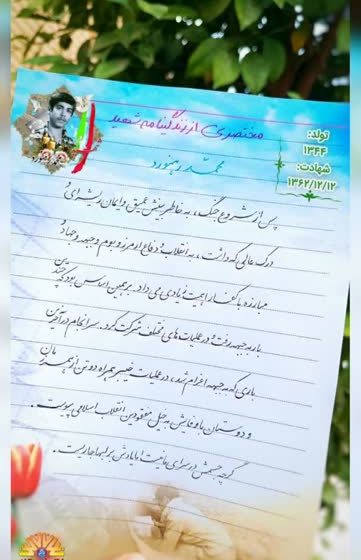 مختصری از زندگینامه شهید
محمد رهنورد
تولد:
۱۳۴۴
شهادت:
۱۳۶۲/۱۲/۱۲
پس از شروع جنگ، به خاطر بینش عمیق و ایمان ریشه‌ای و
درک عالی که داشت، به انقلاب و دفاع از مرز و بوم و جبهه و جهاد و
مبارزه با کفار اهمیت زیادی می داد. بر همین اساس بود که چندین
بار به جبهه رفت و در عملیات های مختلف شرکت کرد. سرانجام در آخرین
باری که به جبهه اعزام شد، در عملیات خیبر همراه دو تن از همرزمان
و دوستان باوفایش به خیل مفقودین انقلاب اسلامی پیوست.
گرچه جسمش در سرای جانیست اما یادش بر لبها جاریست.